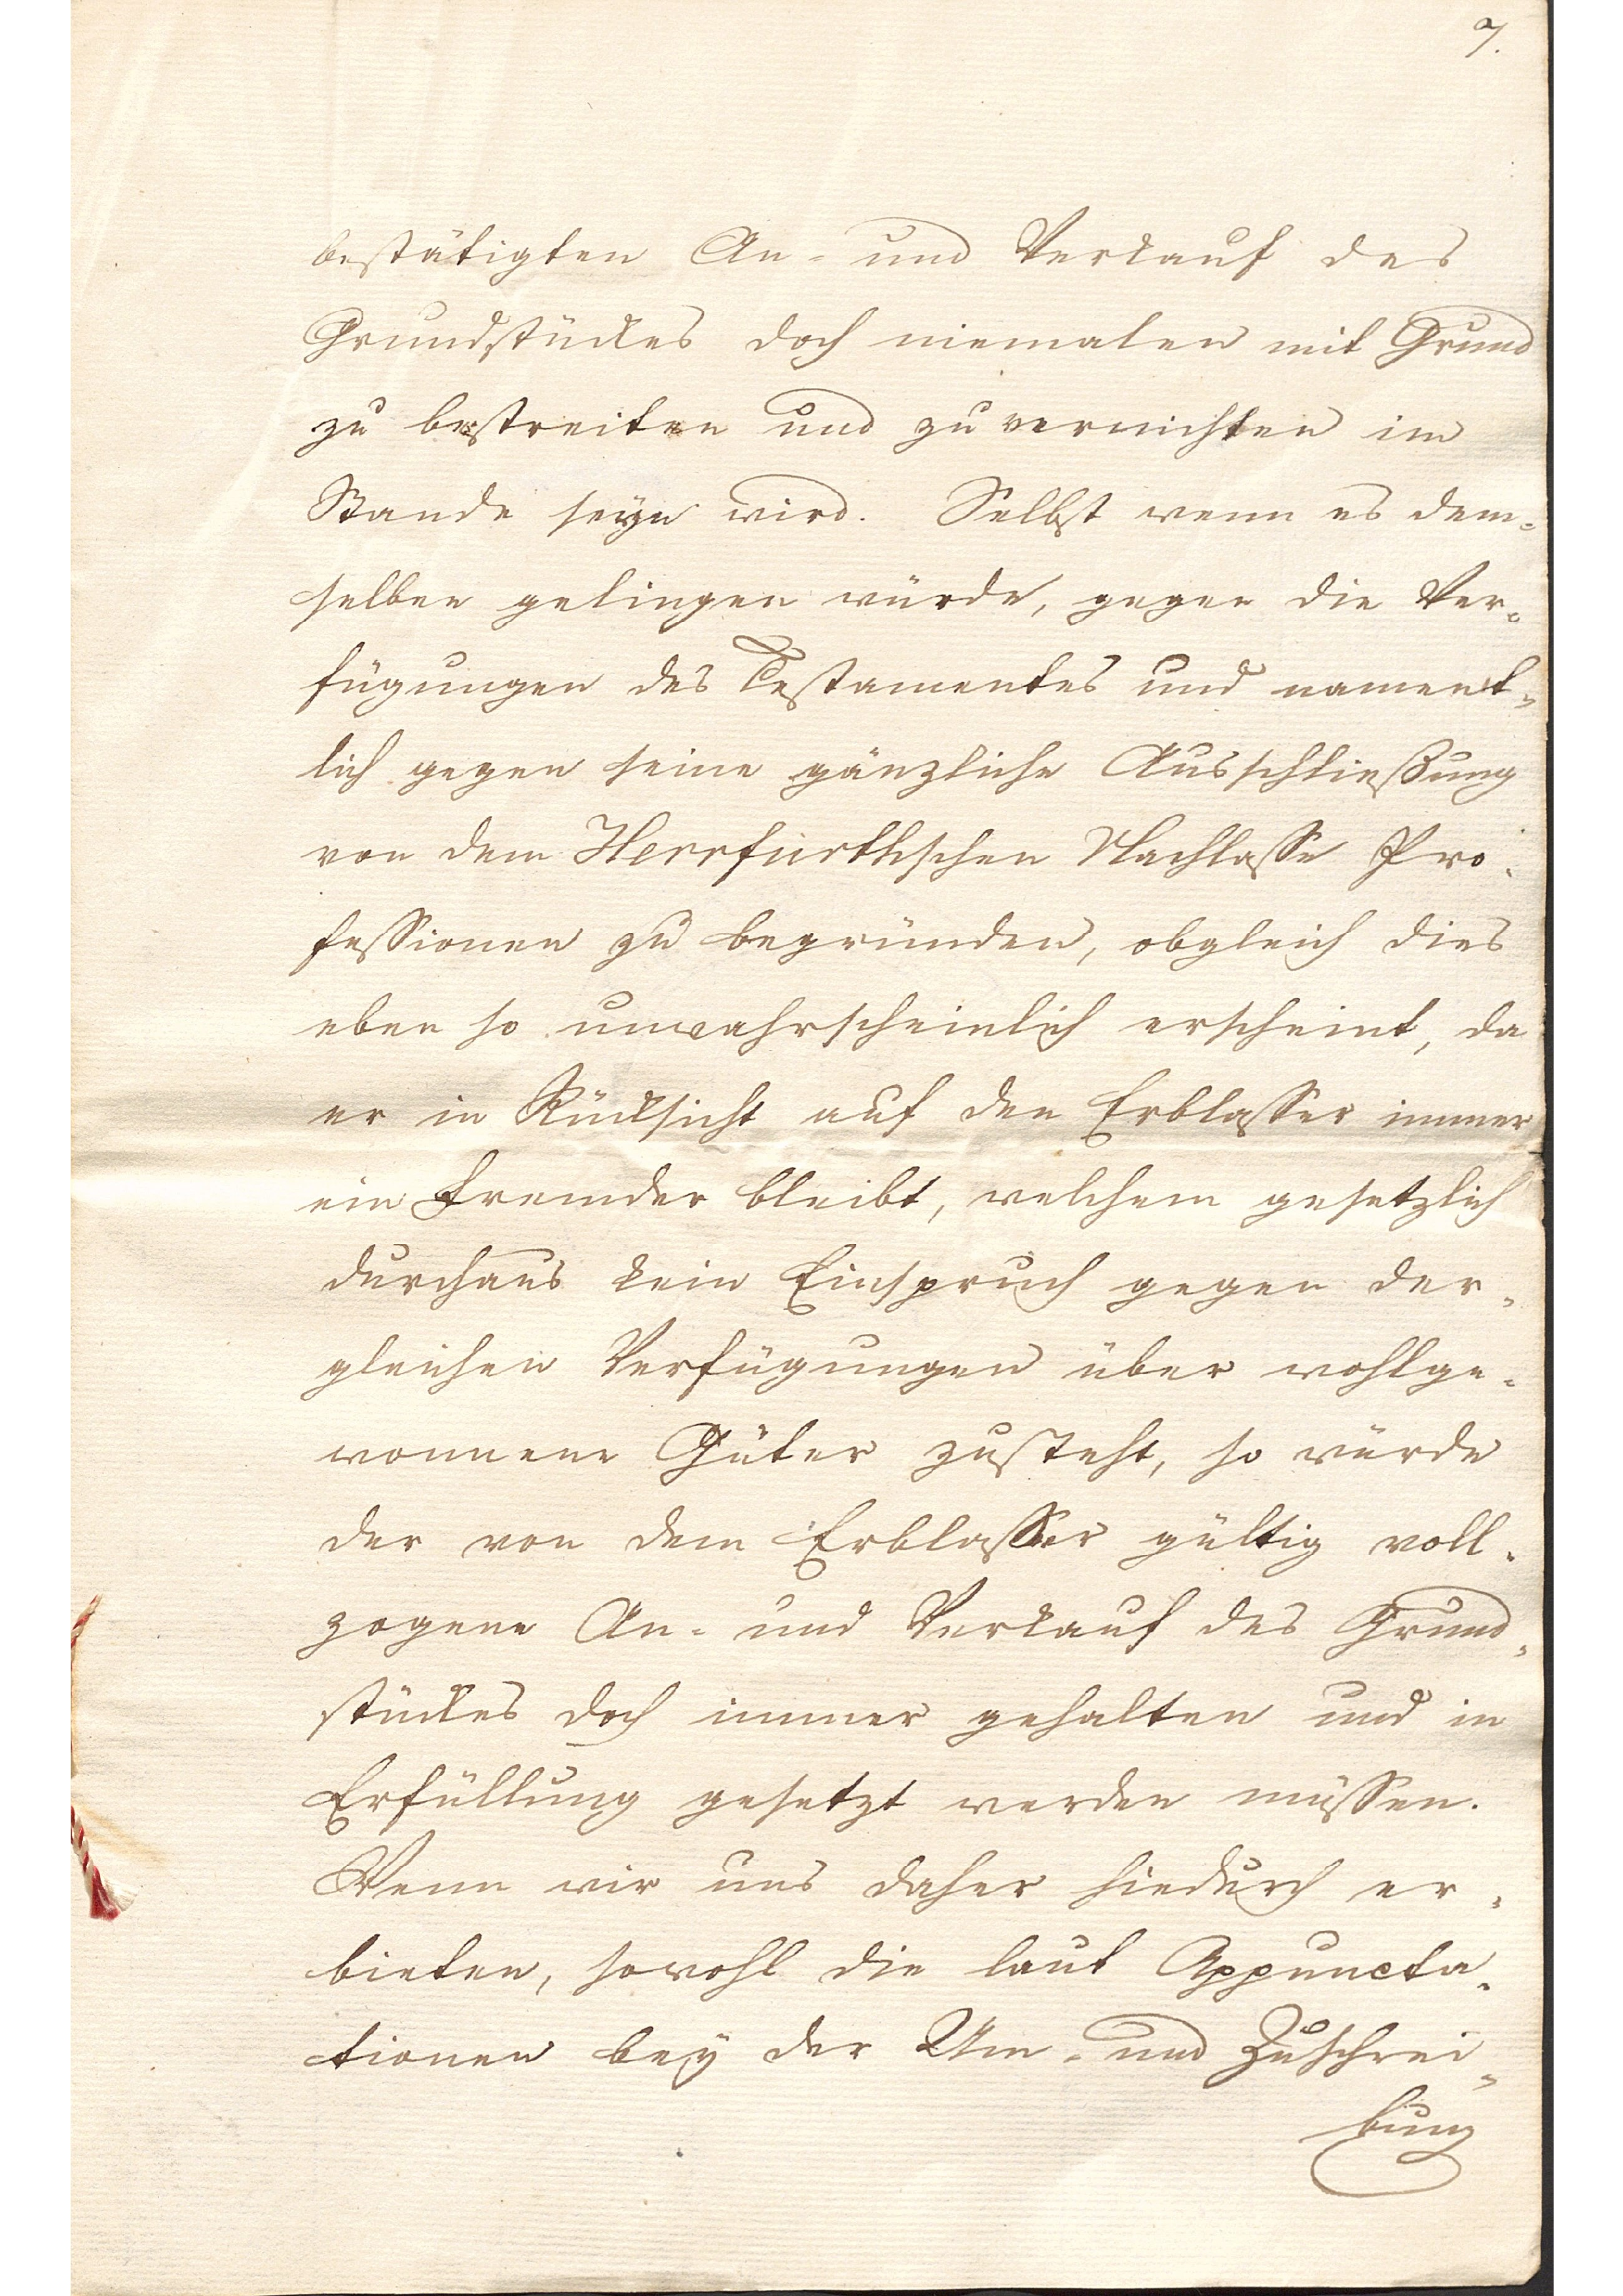 7.
bestätigten An- und Verkauf des
Grundstückes doch niemalen mit Grund
zu bestreiten und zu vernichten im
Stande seyn wird. Selbst wenn es dem-
selben gelingen würde, gegen die Ver-
fügungen des Testamentes und nament-
lich gegen seine gänzliche Ausschließung
von dem Herrfurthschen Nachlasse Pro-
fessionen zu begründen, obgleich dies
eben so unwahrscheinlich erscheint, da
er in Rücksicht auf den Erblasser immer
ein Fremder bleibt, welchem gesetzlich
durchaus kein Einspruch gegen der-
gleichen Verfügungen über wohlge-
wonnene Güter zusteht, so würde
der von dem Erblasser gültig voll-
zogene An- und Verkauf des Grund-
stückes doch immer gehalten und in
Erfüllung gesetzt werden müssen.
Wenn wir uns daher hiedurch er-
bieten, sowohl die laut Appuncta-
tionen bey der Um- und Zuschrei-
bung